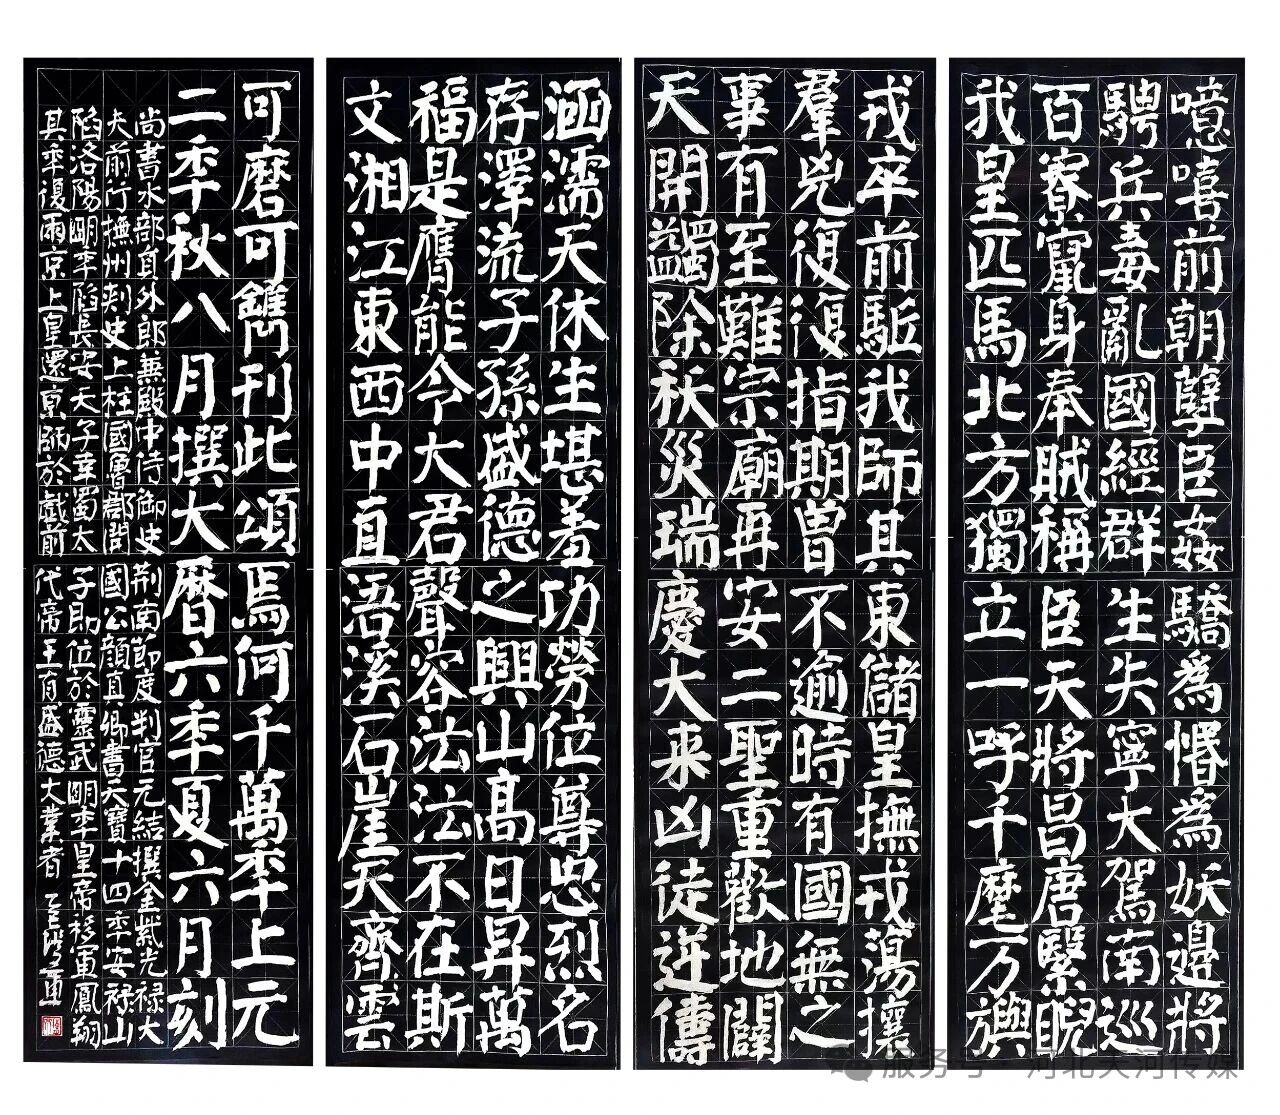 噫嘻前朝孽臣姦驕為惛為妖邊將
騁兵毒亂國經群生失寧大駕南巡
百寮竄身奉賊稱臣天將昌唐繄睨
我皇匹馬北方獨立一呼千麾万旟
戎卒前駈我師其東儲皇撫戎蕩攘
羣兇復復指期曾不逾時有國無之
事有至難宗廟再安二聖重歡地闢
天開蠲除祅災瑞慶大来凶徒逆儔
涵濡天休生堪羞功勞位尊忠烈名
存澤流子孫盛德之興山高日昇萬
福是膺能令大君聲容法法不在斯
文湘江東西中直浯溪石崖天齊雲
可磨可鐫刊此頌焉何千萬秊上元
二秊秋八月撰大曆六秊夏六月刻
尚書水部員外郎兼殿中侍御史荊南節度判官元結撰金紫光祿大
夫前行撫州刺史上柱國魯郡開國公顏真卿書天寶十四秊安祿山
陷洛陽明秊陷長安天子幸蜀太子即位於靈武明秊皇帝移軍鳳翔
其秊復兩京上皇還京師於戲前代帝王有盛德大業者
服务号·河北大河传媒